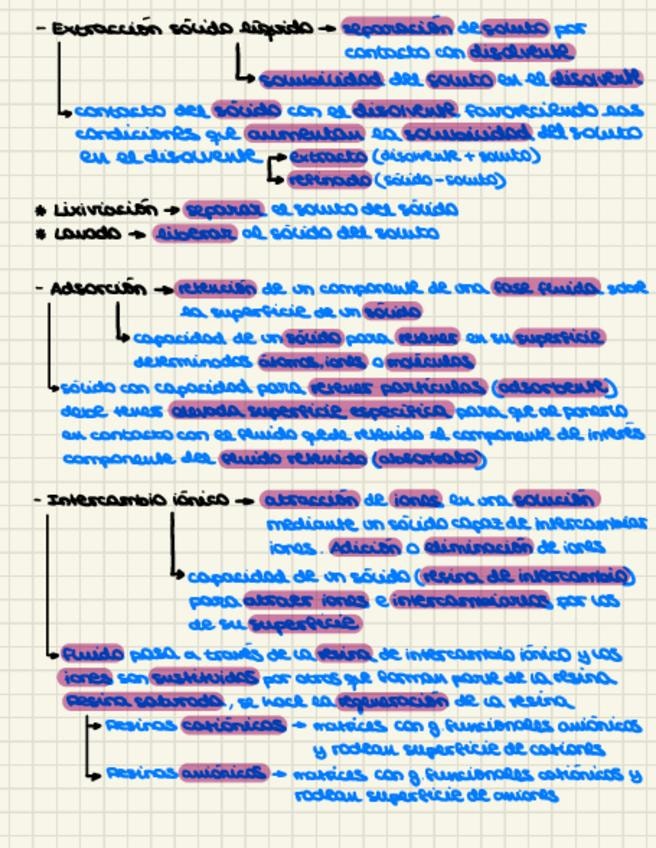 - Extracción sólido líquido → separación de soluto por
contacto con disolvente
→ solubilidad del soluto en el disolvente
→ contacto del sólido con el disolvente favoreciendo las
condiciones que aumentan la solubilidad del soluto
en el disolvente → extracto (disolvente + soluto)
→ refinado (sólido - soluto)
* Lixiviación → separar el soluto del sólido
* Lavado → liberar al sólido del soluto
- Adsorción → retención de un componente de una fase fluida sobre
la superficie de un sólido
→ capacidad de un sólido para retener en su superficie
determinados átomos, iones o moléculas
→ sólido con capacidad para retener partículas (adsorbente)
debe tener elevada superficie específica para que al ponerlo
en contacto con el fluido quede retenido el componente de interés
componente del fluido retenido (adsorbato)
- Intercambio iónico → atracción de iones en una solución
mediante un sólido capaz de intercambiar
iones. Adición o eliminación de iones
→ capacidad de un sólido (resina de intercambio)
para atraer iones e intercambiarlos por los
de su superficie
→ Fluido pasa a través de la resina de intercambio iónico y los
iones son sustituidos por otros que forman parte de la resina
Resina saturada, se hace la regeneración de la resina
→ Resinas catiónicas → matrices con g. funcionales aniónicos
y rodean superficie de cationes
→ Resinas aniónicas → matrices con g. funcionales catiónicos y
rodean superficie de aniones